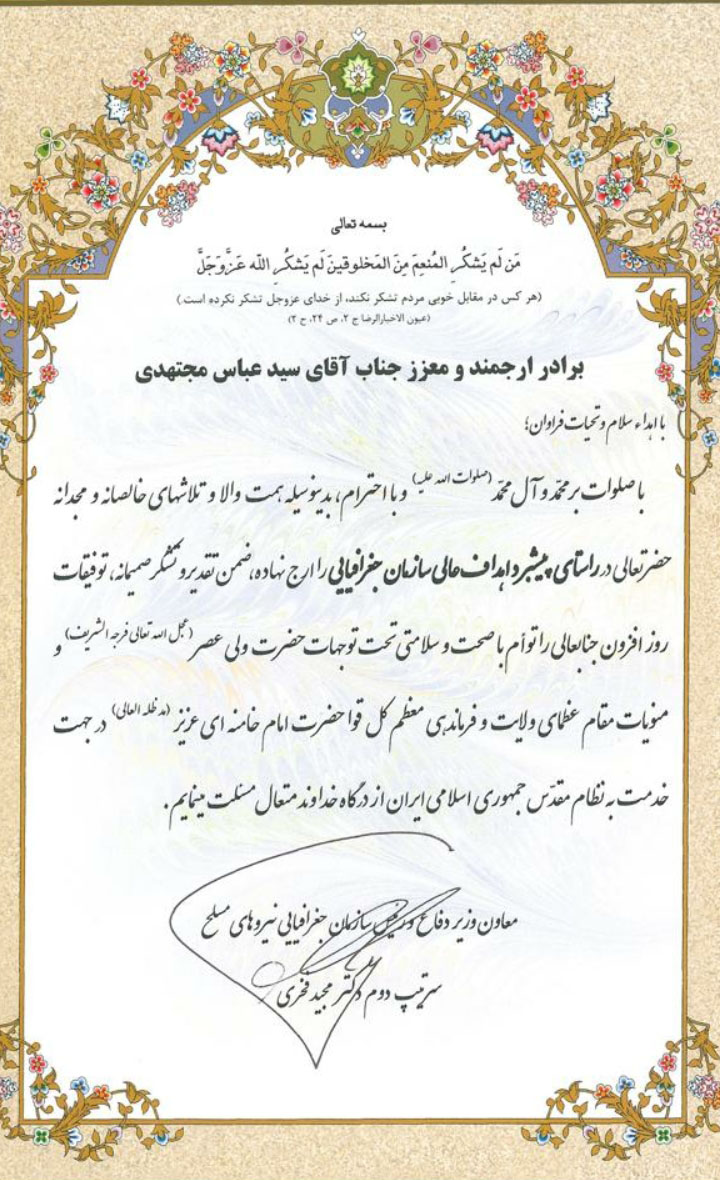 بسمه تعالی
مَن لَم یَشکُرِ المُنعِمَ مِنَ المَخلوقینَ لَم یَشکُرِ اللّه عَزَّوَجَلَّ
(هر کس در مقابل خوبی مردم تشکر نکند، از خدای عزوجل تشکر نکرده است.)
(عیون الاخبارالرضا ج ۲، ص ۲۴، ح ۲)
برادر ارجمند و معزز جناب آقای سید عباس مجتهدی
با اهداء سلام و تحیات فراوان؛
با صلوات بر محمّد و آل محمّد (صلوات الله علیه) و با احترام، بدینوسیله همت والا و تلاشهای خالصانه و مجدانه
حضرتعالی در راستای پیشبرد اهداف عالی سازمان جغرافیایی را ارج نهاده، ضمن تقدیر و تشکر صمیمانه، توفیقات
روز افزون جنابعالی را توأم با صحت و سلامتی تحت توجهات حضرت ولی عصر (عجل الله تعالی فرجه الشریف) و
منویات مقام عظمای ولایت و فرماندهی معظم کل قوا حضرت امام خامنه ای عزیز (مدظله العالی) در جهت
خدمت به نظام مقدّس جمهوری اسلامی ایران از درگاه خداوند متعال مسئلت مینمایم.
معاون وزیر دفاع و رئیس سازمان جغرافیایی نیروهای مسلح
سرتیپ دوم دکتر مجید فخری